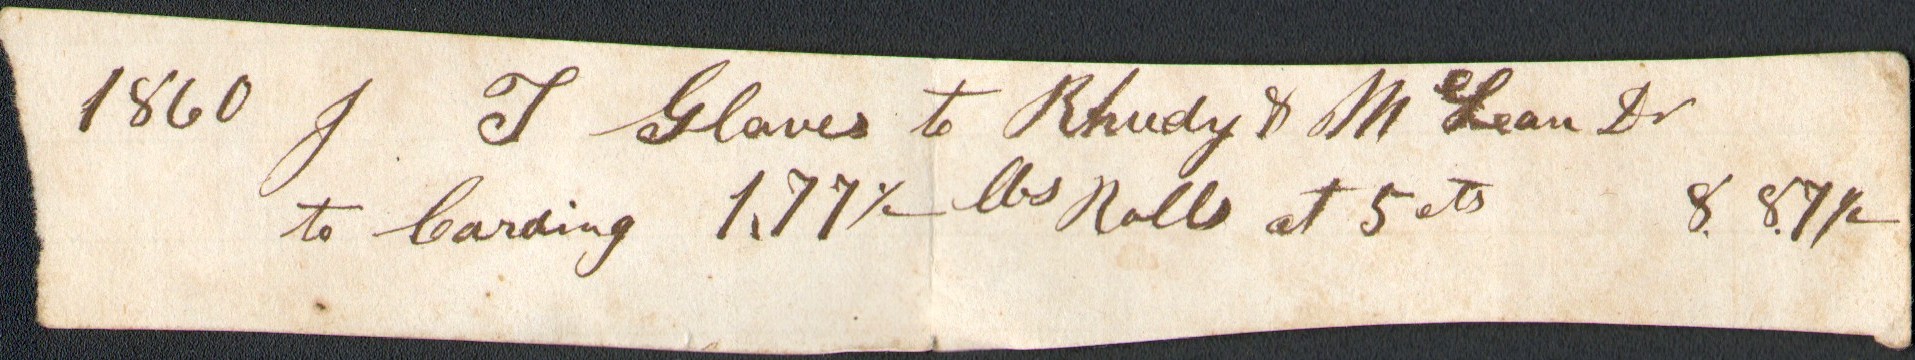 1860 J T Glaves to Rhudy & McLean Dr
to Carding 177½ lbs Rolls at 5 cts 8.87½